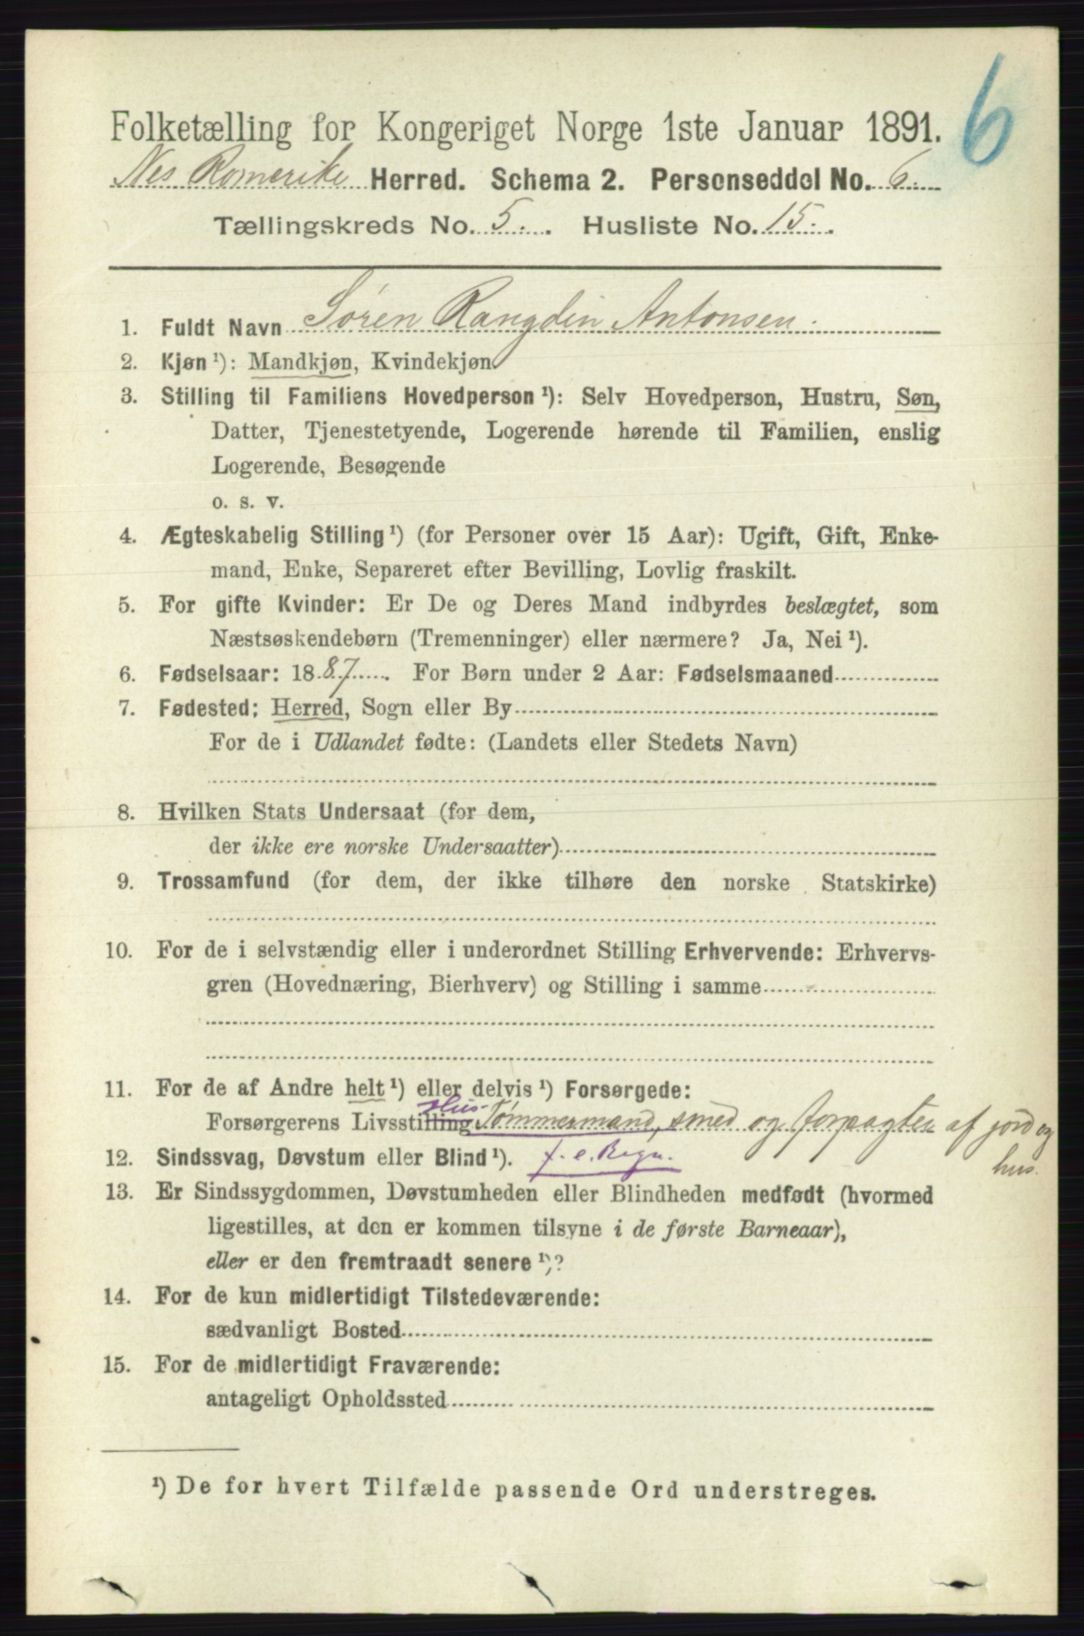 6
Folketælling for Kongeriget Norge 1ste Januar 1891.
Nes Romerike Herred. Schema 2. Personseddel No. 6.
Tællingskreds No. 5. Husliste No. 15.
1. Fuldt Navn Søren Rangdin Antonsen.
2. Kjøn ¹): Mandkjøn, Kvindekjøn.
3. Stilling til Familiens Hovedperson ¹): Selv Hovedperson, Hustru, Søn,
Datter, Tjenestetyende, Logerende hørende til Familien, enslig
Logerende, Besøgende
o. s. v.
4. Ægteskabelig Stilling ¹) (for Personer over 15 Aar): Ugift, Gift, Enke-
mand, Enke, Separeret efter Bevilling, Lovlig fraskilt.
5. For gifte Kvinder: Er De og Deres Mand indbyrdes beslægtet, som
Næstsøskendebørn (Tremenninger) eller nærmere? Ja, Nei ¹).
6. Fødselsaar: 1887. For Børn under 2 Aar: Fødselsmaaned
7. Fødested: Herred, Sogn eller By
For de i Udlandet fødte: (Landets eller Stedets Navn)
8. Hvilken Stats Undersaat (for dem,
der ikke ere norske Undersaatter)
9. Trossamfund (for dem, der ikke tilhøre den norske Statskirke)
10. For de i selvstændig eller i underordnet Stilling Erhvervende: Erhvervs-
gren (Hovednæring, Bierhverv) og Stilling i samme
11. For de af Andre helt ¹) eller delvis ¹) Forsørgede:
Hus-
Forsørgerens Livsstilling Tømmermand, smed og forpagter af jord og
hus.
12. Sindssvag, Døvstum eller Blind ¹). f. e. Regn.
13. Er Sindssygdommen, Døvstumheden eller Blindheden medfødt (hvormed
ligestilles, at den er kommen tilsyne i de første Barneaar),
eller er den fremtraadt senere ¹)?
14. For de kun midlertidigt Tilstedeværende:
sædvanligt Bosted
15. For de midlertidigt Fraværende:
antageligt Opholdssted
¹) De for hvert Tilfælde passende Ord understreges.